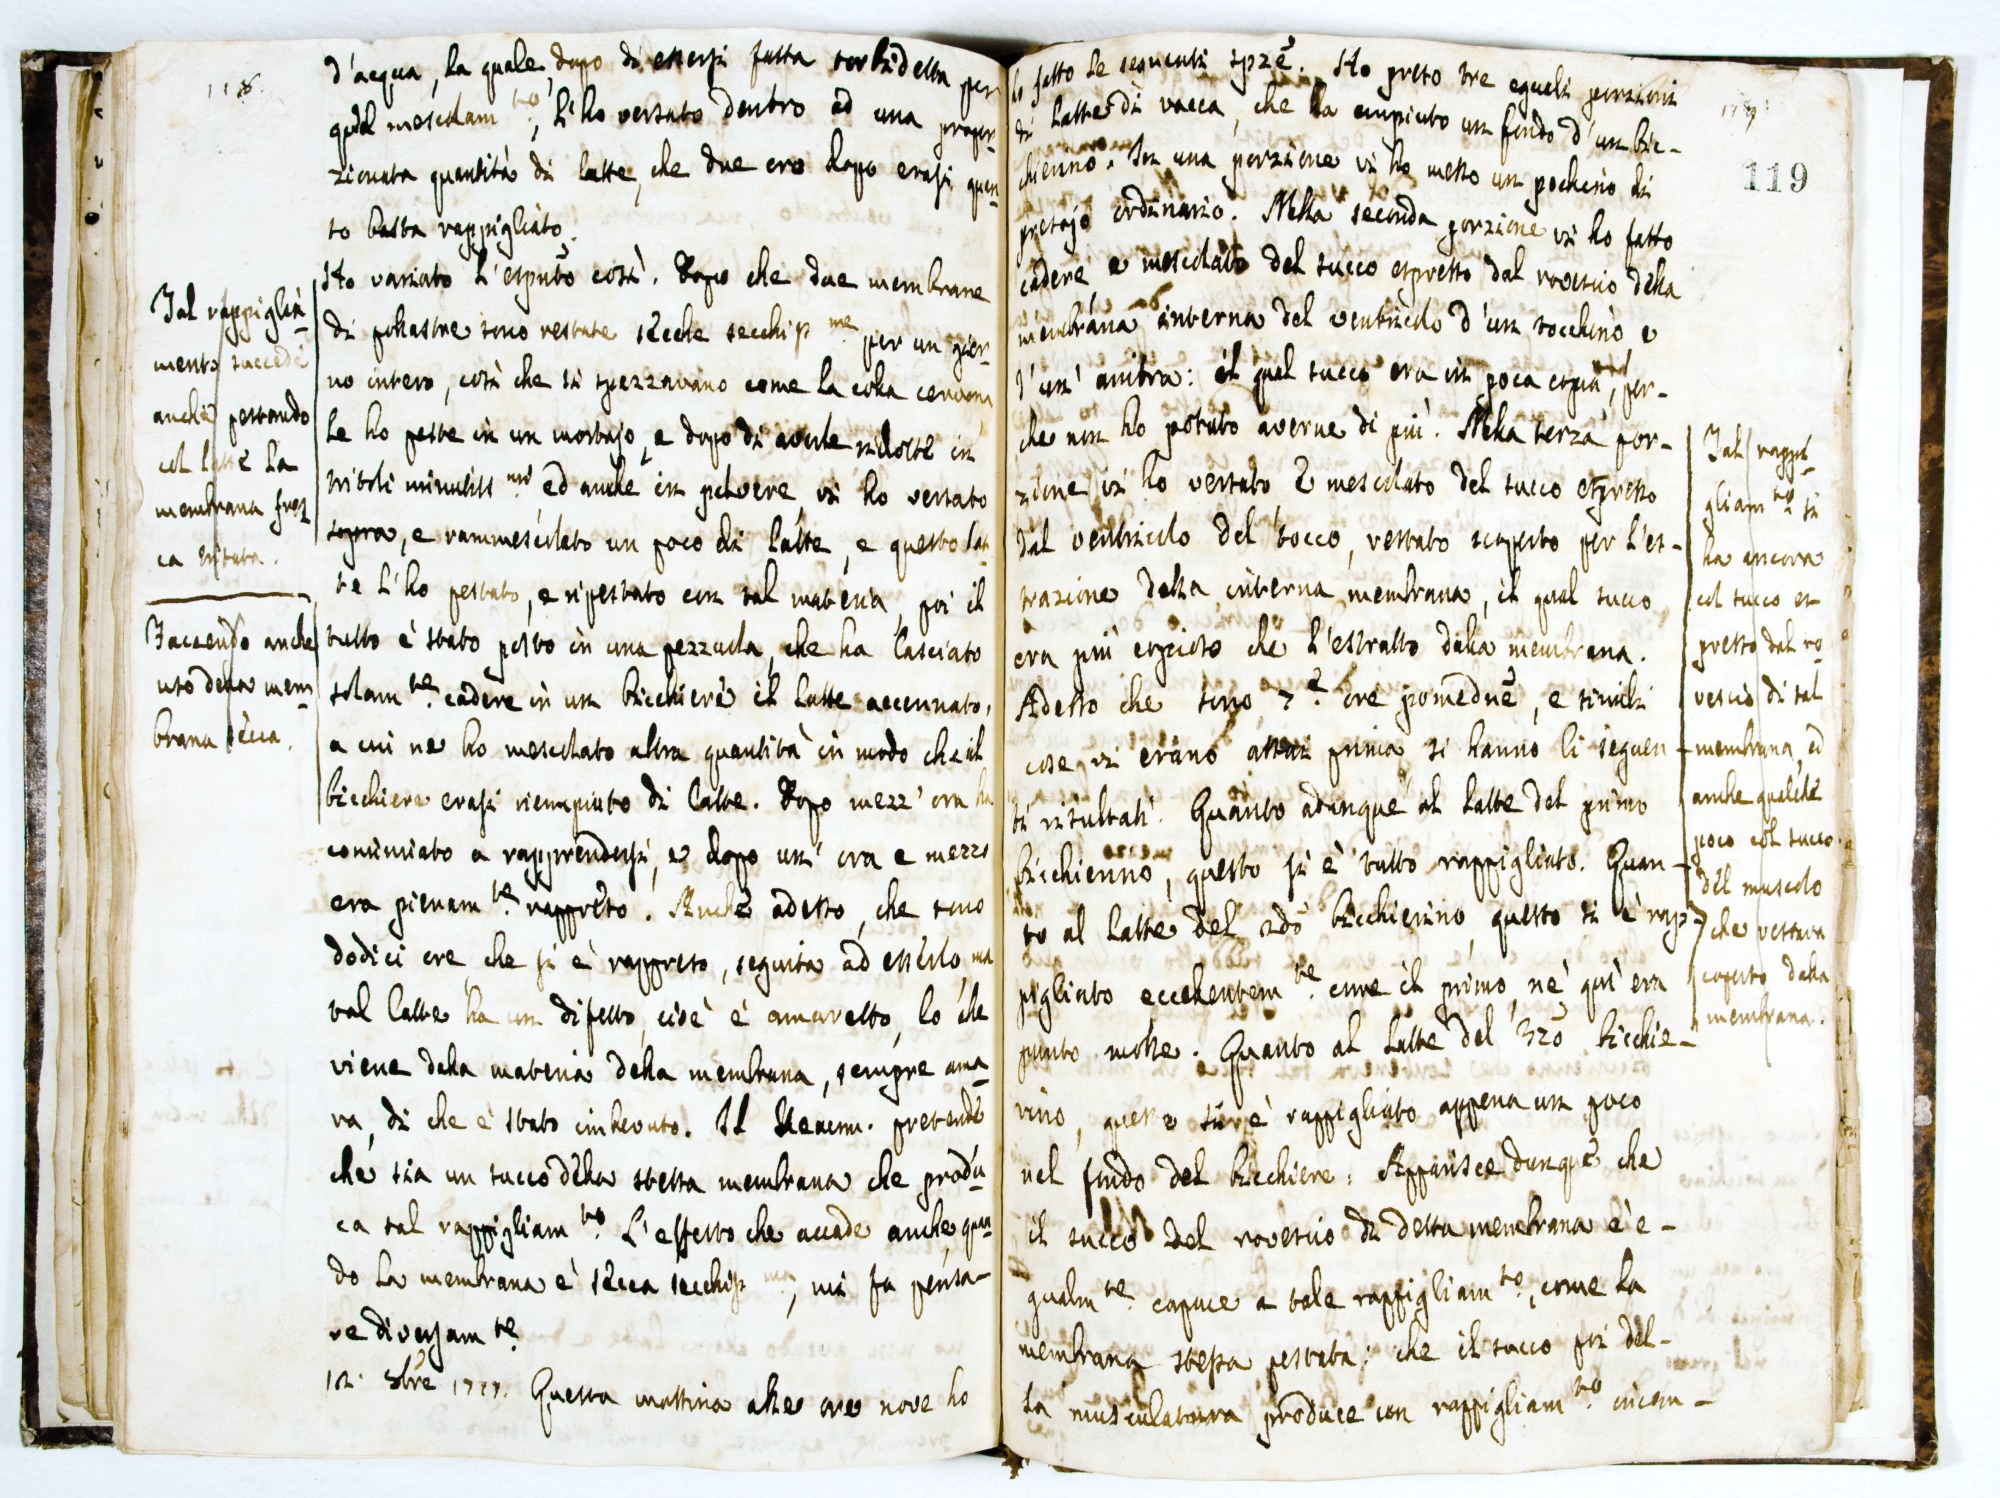 118
d'acqua, la quale dopo di essersi fatta torbidetta per
quel mescolam.to, l'ho versato dentro ad una propor-
zionata quantità di latte, che due ore dopo erasi quan-
to basta rappigliato.
Ho variato l'esputo così. Dopo che due membrane
di pollastre sono restate secche secchiss.me per un gior-
no intero, così che si spezzavano come la colla cervona
le ho peste in un mortajo, e dopo di averle ridotte in
tritoli minutiss.mi ed anche in polvere vi ho versato
sopra, e rammescolato un poco di latte, e questo lat-
te l'ho pestato, e ripestato con tal materia, poi il
tutto è stato posto in una pezzuola, che ha lasciato
solam.te cadere in un bicchiere il latte accennato,
a cui ne ho mescolato altra quantità in modo che il
bicchiere erasi riempiuto di latte. Dopo mezz'ora ha
cominciato a rapprendersi, e dopo un'ora e mezzo
era pienam.te rappreso. Anche adesso, che sono
dodici ore che si è rappreso, seguita ad esserlo, ma
tal latte ha un difetto, cioè è amaretto, lo che
viene dalla materia della membrana, sempre ama-
ra, di che è stato imbevuto. Il Reaum. pretende
che sia un succo della stessa membrana che produ-
ca tal rappigliam.to L'effetto che accade anche quan-
do la membrana è secca secchiss.ma, mi fa pensa-
re diversam.te
12. 8bre 1777. Questa mattina alle ore nove ho
Tal rappiglia-
mento succede
anche pestando
col latte la
membrana fres-
ca tritata.
Facendo anche
uso della mem-
brana secca.
119
119
fatto le seguenti spze. Ho preso tre eguali porzioni
di latte di vacca, che ha empiuto un fondo d'un bic-
chierino. In una porzione vi ho messo un pochino di
presajo ordinario. Nella seconda porzione vi ho fatto
cadere, e mescolato del succo espresso dal rovescio della
membrana interna del ventricolo d'un tocchino e
d'un'anitra: il qual succo era in poca copia, per-
che non ho potuto averne di più. Nella terza por-
zione vi ho versato e mescolato del succo espresso
dal ventricolo del tocco, restato scoperto per l'es-
trazione della interna membrana, il qual succo
era più copioso che l'estratto dalla membrana.
Adesso che sono 7.e ore pomedne, e simili
cose vi erano assai prima si hanno li seguen-
ti risultati. Quanto adunque al latte del primo
bicchierino, questo si è tutto rappigliato. Quan-
to al latte del 2do bicchierino questo si è rap-
pigliato eccellentem.te come il primo, nè qui era
punto molle. Quanto al latte del 3zo bicchie-
rino, questo si è rappigliato appena un poco
nel fondo del bicchiere. Apparisce dunque che
il succo del rovescio di detta membrana è e-
gualm.te capace a tale rappigliam.to, come la
membrana stessa pestata: che il succo poi del-
la musculatura produce un rappigliam.to incom-
Tal rappi-
gliam.to si
ha ancora
col succo es-
presso dal ro-
vescio di tal
membrana, ed
anche qualche
poco col succo
del muscolo
che restava
coperto dalla
membrana.